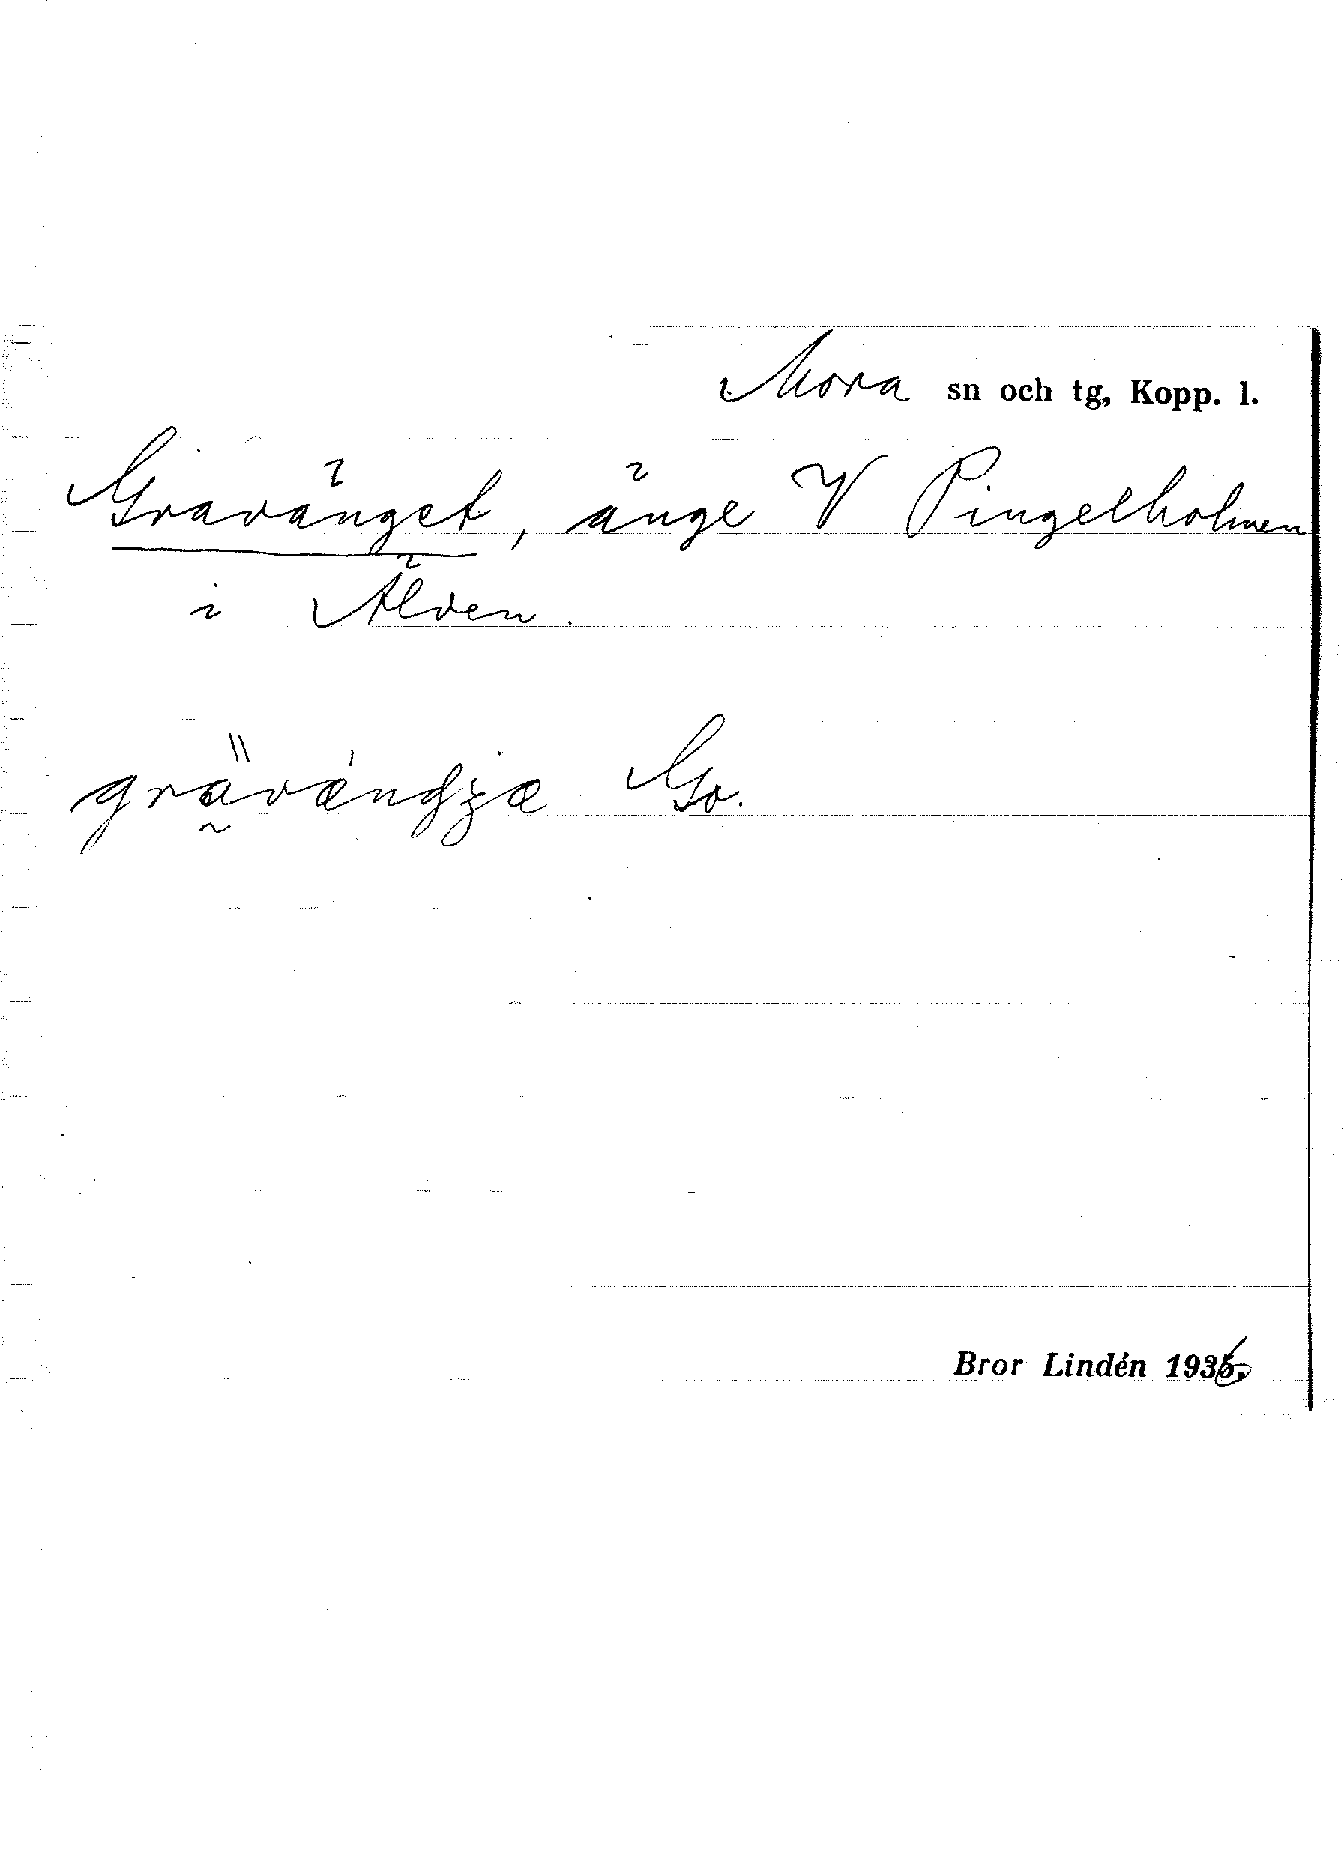 Mora sn och tg, Kopp. l.
Gravänget, änge V Pingelholmen
i Älven.
grävängʒæ Go.
Bror Lindén 1936.